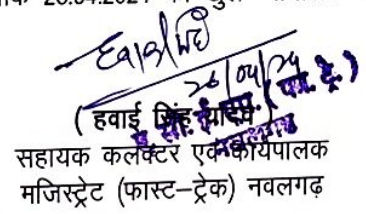 हवाई सिंह
26/04/24
(हवाई सिंह यादव)
सहायक कलक्टर एवं कार्यपालक
मजिस्ट्रेट (फास्ट-ट्रेक) नवलगढ़